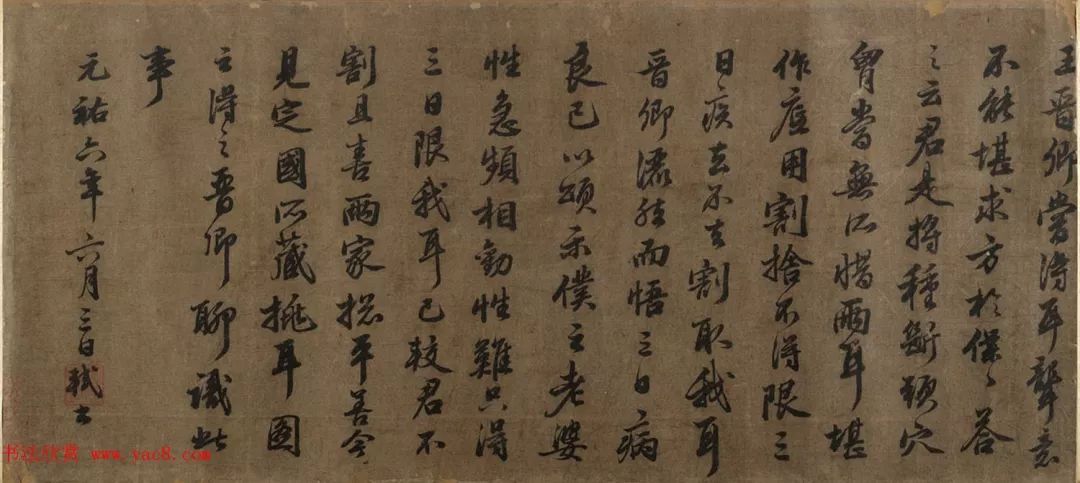 王晉卿嘗得耳聾意
不能堪求方於僕〻答
之云君是將種斷頭穴
胷當無所惜兩耳堪
作底用割捨不得限三
日疾去不去割取我耳
晉卿灑然而悟三日病
良已以頌示僕云老婆
性急頻相勸性難只得
三日限我耳已較君不
割且喜兩家揔平善今
見定國所藏挑耳圖
云得之晉卿聊識此
事
元祐六年六月二日軾書
书法欣赏 www.yac8.com